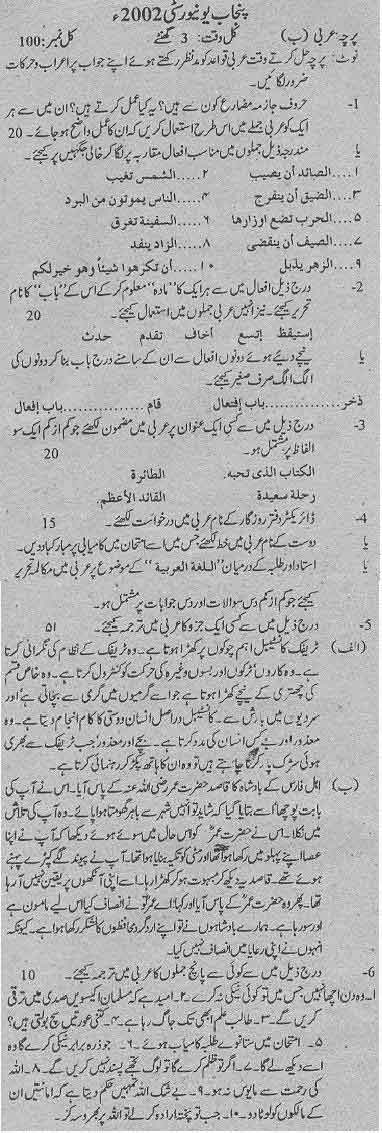 پنجاب یونیورسٹی 2002ء
پرچہ عربی (ب) کل وقت: 3 گھنٹے کل نمبر: 100
نوٹ: پرچہ حل کرتے وقت عربی قواعد کو مدنظر رکھتے ہوئے اپنے جواب پر اعراب و حرکات
ضرور لگائیں۔
1- حروف جازمہ مضارع کون سے ہیں؟ یہ کیا عمل کرتے ہیں؟ ان میں سے ہر
ایک کو عربی جملے میں اس طرح استعمال کریں کہ ان کا عمل واضح ہو جائے۔ 20
یا مندرجہ ذیل جملوں میں مناسب افعال مقاربہ پر لگا کر خالی جگہیں پر کیجئے۔
۱....الصائد أن یصیب ۲.....الشمس تغیب
۳....الضیق أن ینفرج ۴....الناس یموتون من البرد
۵....الحرب تضع اوزارها ۶....السفینة تغرق
۷....الصیف أن ینقضی ۸....الزاد ینفد
۹....الزهر یذبل ۱۰....أن تکرهوا شیئاً وهو خیرلکم
2- درج ذیل افعال میں سے ہر ایک کا "مادہ" معلوم کر کے اس کے "باب" کا نام
تحریر کیجئے۔ نیز انہیں عربی جملوں میں استعمال کیجئے۔ 20
إستیقظ إتسع أخاف تقدم حدث
یا نیچے دیئے ہوئے دونوں افعال سے ان کے سامنے درج باب بنا کر دونوں کی
الگ الگ صرف صغیر کیجئے۔
ذخر..............باب إفتعال قام..........باب إفعال
3- درج ذیل میں سے کسی ایک عنوان پر عربی میں مضمون لکھئے جو کم از کم ایک سو
الفاظ پر مشتمل ہو۔ 20
الکتاب الذی تحبه. الطائرة
رحلة سعیدة القائد الأعظم.
4- ڈائریکٹر دفتر روزگار کے نام عربی میں درخواست لکھئے۔ 15
یا دوست کے نام عربی میں خط لکھئے جس میں اسے امتحان میں کامیابی پر مبارکباد دیں۔
یا استاد اور طلبہ کے درمیان "اللغة العربیة" کے موضوع پر عربی میں مکالمہ تحریر
کیجئے جو کم از کم دس سوالات اور دس جوابات پر مشتمل ہو۔
5- درج ذیل میں سے کسی ایک جزو کا عربی میں ترجمہ کیجئے۔ 15
(الف) ٹریفک کانسٹیبل اہم چوکوں پر کھڑا ہوتا ہے۔ وہ ٹریفک کے نظام کی نگرانی کرتا
ہے۔ وہ کاروں، ٹرکوں اور بسوں وغیرہ کی حرکت کو کنٹرول کرتا ہے۔ وہ خاص قسم
کی چھتری کے نیچے کھڑا ہوتا ہے جو اسے گرمیوں میں گرمی سے بچاتی ہے اور
سردیوں میں بارش سے۔ کانسٹیبل دراصل انسان دوستی کا کام انجام دیتا ہے۔ وہ
معذور اور بے کس انسان کی مدد کرتا ہے۔ بچے اور معذور جب ٹریفک سے بھری
ہوئی سڑک پار کرنا چاہتے ہیں تو وہ ان کا ہاتھ پکڑ کر رہنمائی کرتا ہے۔
(ب) اہل فارس کے بادشاہ کا قاصد حضرت عمر رضی اللہ عنہ کے پاس آیا۔ اس نے آپ کی
بابت پوچھا تو اسے بتایا گیا کہ شاید تو انہیں شہر سے باہر گھومتا ہوا پائے۔ وہ آپ کی تلاش
میں نکلا۔ اس نے حضرت عمرؓ کو اس حال میں سوئے ہوئے دیکھا کہ آپ نے اپنا
عصا اپنے پہلو میں رکھا ہوا تھا اور مٹی کو تکیہ بنایا ہوا تھا۔ آپ نے پیوند لگے کپڑے پہنے
ہوئے تھے۔ قاصد یہ دیکھ کر مبہوت ہو کر کھڑا رہا۔ اسے اپنی آنکھوں پر یقین نہیں آ رہا
تھا۔ پھر وہ حضرت عمرؓ کے پاس آیا اور کہا: اے عمر تو نے انصاف کیا اس لیے مامون ہے
اور سو رہا ہے۔ ہمارے بادشاہوں نے اپنے ارد گرد محافظوں کا لشکر رکھا ہوا ہے۔ کیونکہ
انہوں نے اپنی رعایا میں انصاف نہیں کیا۔
6- درج ذیل میں سے کوئی سے پانچ جملوں کا عربی میں ترجمہ کیجئے۔ 10
۱۔ وہ دن اچھا نہیں جس میں تو کوئی نیکی نہ کرے ۲۔ امید ہے کہ مسلمان اکیسویں صدی میں ترقی
کریں گے۔ ۳۔ طالب علم ابھی تک جاگ رہا ہے۔ ۴۔ کتنی عورتیں سچ بولتی ہیں؟
۵۔ امتحان میں ستانوے طلبہ کامیاب ہوئے۔ ۶۔ جو ذرہ برابر نیکی کرے گا وہ
اسے دیکھ لے گا۔ ۷۔ اگر تو ظلم کرے گا تو لوگ تجھے پسند نہیں کریں گے۔ ۸۔ اللہ
کی رحمت سے مایوس نہ ہو۔ ۹۔ بے شک اللہ تمہیں حکم دیتا ہے کہ امانتیں ان
کے مالکوں کو لوٹا دو۔ ۱۰۔ جب تو پختہ ارادہ کر لے تو اللہ پر بھروسہ کر۔